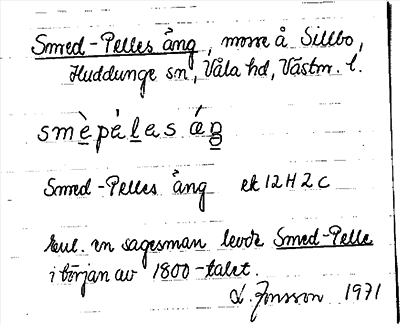 Smed-Pelles äng, mosse å Sillbo,
Huddunge sn, Våla hd, Västm. l.
smèpáles áŋ
Smed-Pelles äng ek 12 H 2 C
Enl. en sagesman levde Smed-Pelle
i början av 1800-talet.
L. Jonsson 1971